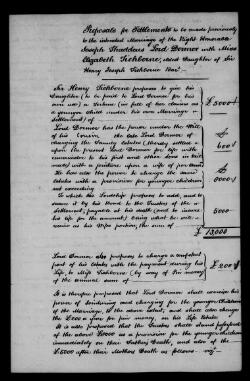 Proposals for Settlements to be made previously
to the intended Marriage of the Right Honorable
Joseph Thaddeus Lord Dormer with Miss
Elizabeth Tichborne, second Daughter of Sir
Henry Joseph Tichborne Bart
Sir Henry Tichborne proposes to give his
Daughter (to be paid to Lord Dormer for his
own use) a Fortune (in full of her claims as
a younger child under his own Marriage
Settlement) of
£ 5000
Lord Dormer has the power under the Will
of his the late Lord Dormer of
charging the Family Estates (thereby settled
upon the present Lord Dormer for life with
remainder to his first and other Sons in tail
male) with a jointure upon a wife of
600
and has the power to charge the same
Estates with a provision for younger children
not exceeding
To which his Lordship proposes to add, and to
secure it by his Bond to the Trustees of the
Settlement, payable at his death (and to insure
his life for the amount) being what he
as his Wifes portion, the sum of
5000
£ 13,000
Lord Dormer also proposes to charge a competent
part of his Estates with the payment during his
Life, to Miss Tichborne (by way of Pin money)
of the annual sum of
£ 200
It is therefore proposed that Lord Dormer shall exercise his
power of jointuring and charging for the younger Children
of the Marriage, to the above extent, and shall also charge
the £200 a year for pin money, on his Life Estate
It is also proposed that the Trustees shall stand possessed
of the above £8000 as a provision for the younger children
immediately on their Fathers death, and also of the
£5000 after their Mothers death as follows